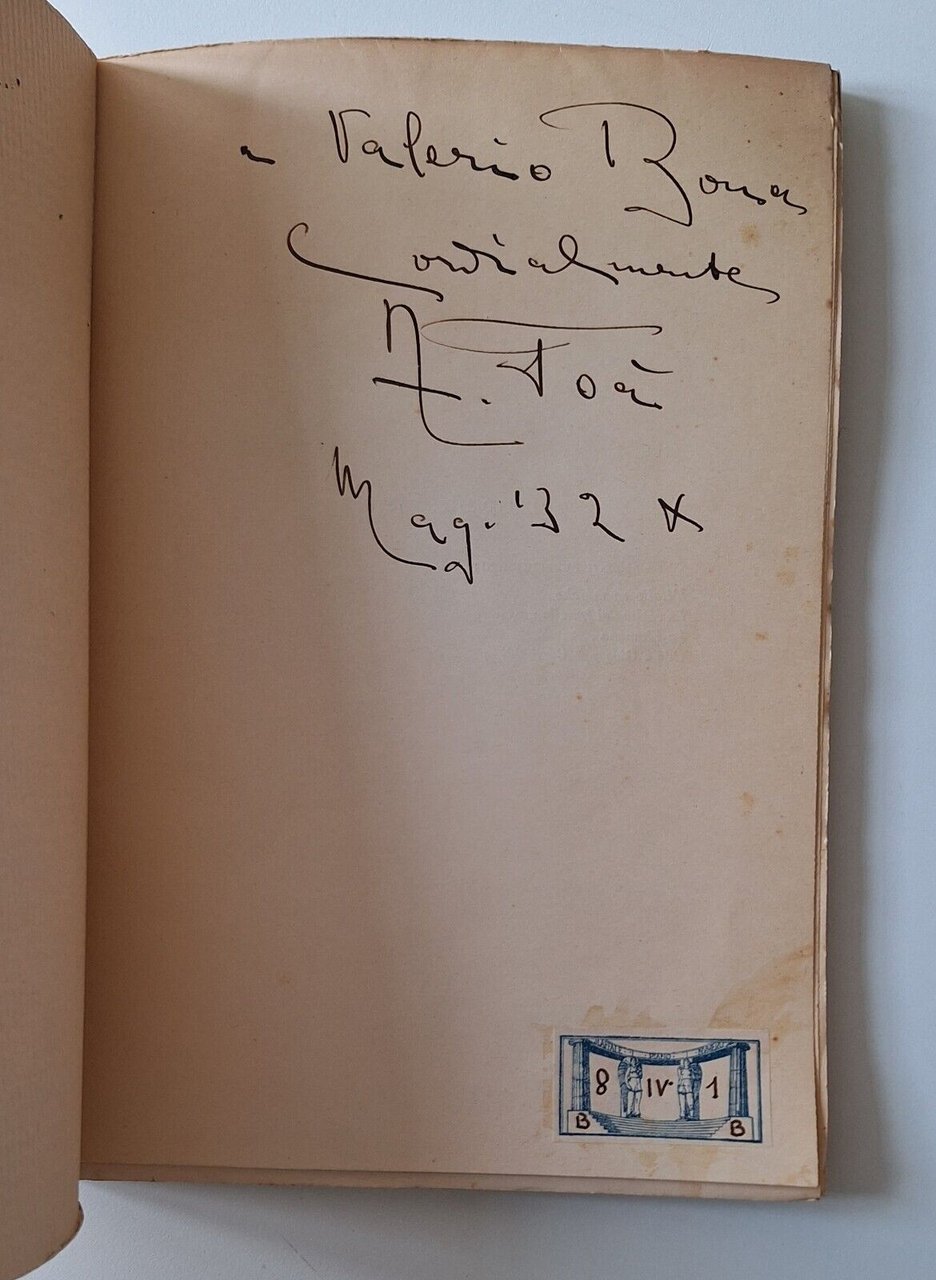 a Valerio Bona
Cordialmente
A. Toà
Mag. '32 X
8 IV· 1
B B